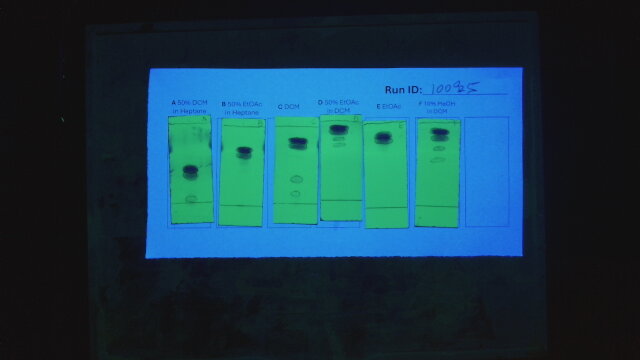 Run ID: 100925
A 50% DCM
in Heptane
B 50% EtOAc
in Heptane
C DCM
D 50% EtOAc
in DCM
E EtOAc
F 10% MeOH
in DCM